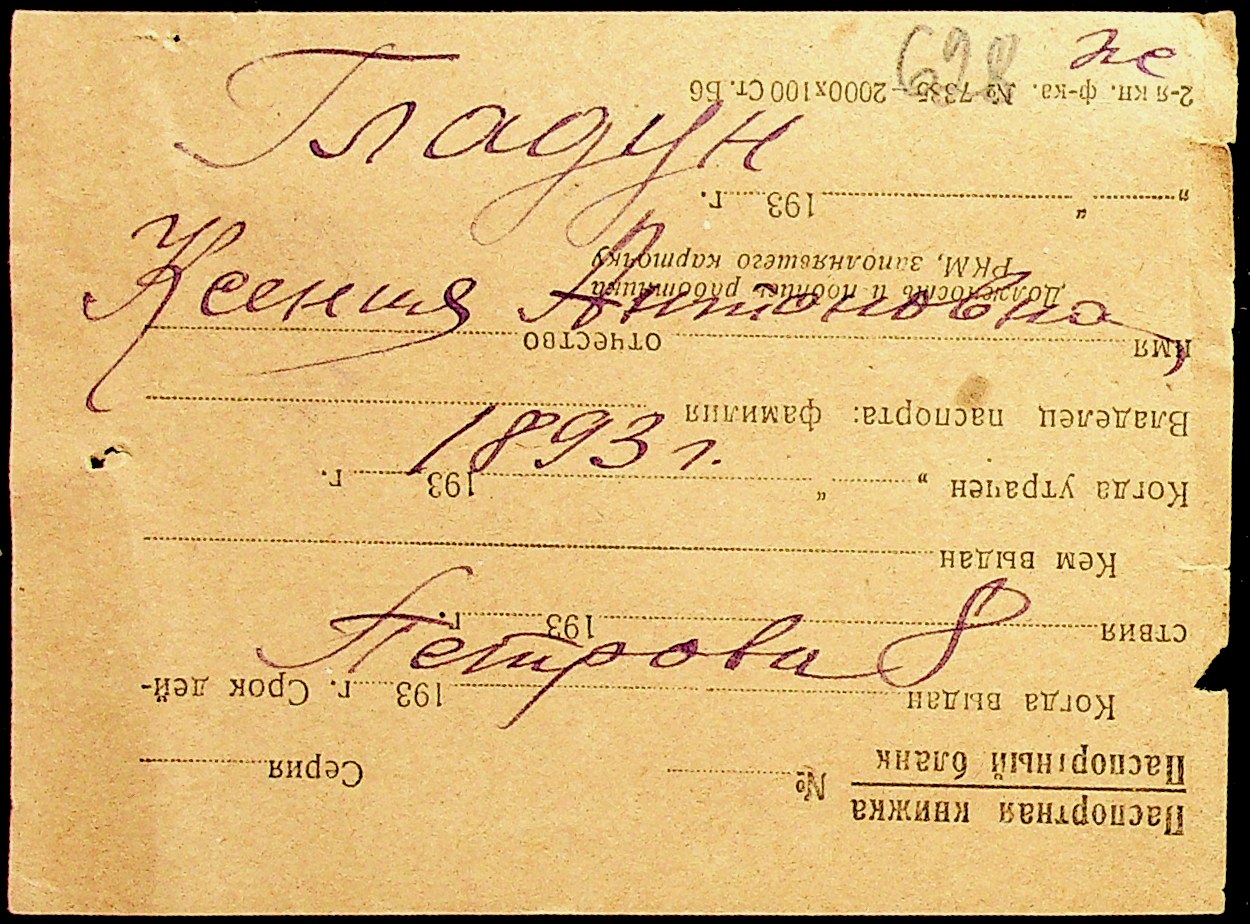 Гладун
Ксения Антоновна,
1893 г.
Петрова 8
Паспортная книжка
Паспортный бланк № Серия
Когда выдан 193 г. Срок дей-
ствия 193 г.
Кем выдан
Когда утрачен „ “ 193 г.
Владелец паспорта: фамилия
имя отчество
Должность и подпись работника
РКМ, заполнявшего карточку
„ “ 193 г.
2-я кн. ф-ка. № 7335—2000х100 Ст. Б6